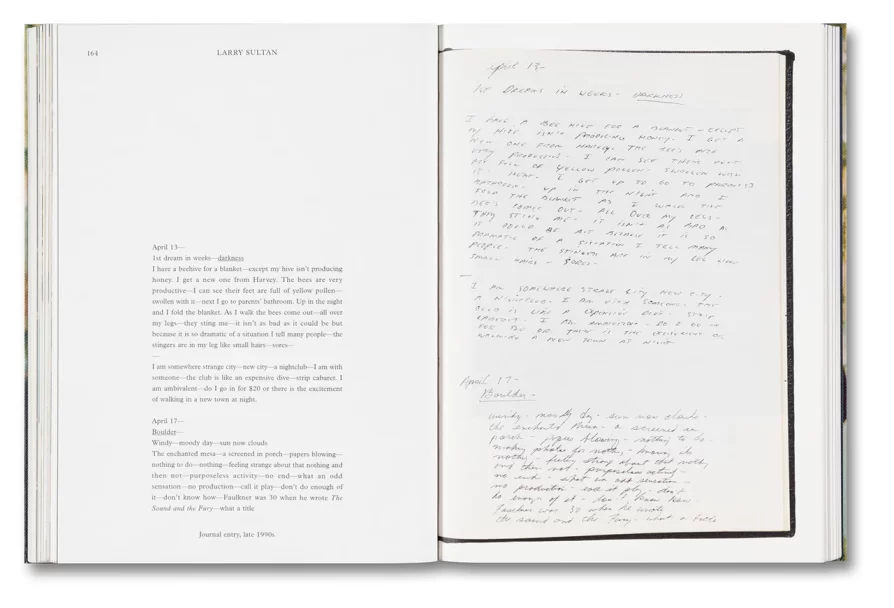 164
LARRY SULTAN
April 13—
1st dream in weeks—darkness
I have a beehive for a blanket—except my hive isn't producing
honey. I get a new one from Harvey. The bees are very
productive—I can see their feet are full of yellow pollen—
swollen with it—next I go to parents' bathroom. Up in the night
and I fold the blanket. As I walk the bees come out—all over
my legs—they sting me—it isn't as bad as it could be but
because it is so dramatic of a situation I tell many people—the
stingers are in my leg like small hairs—sores—
—
I am somewhere strange city—new city—a nightclub—I am with
someone—the club is like an expensive dive—strip cabaret. I
am ambivalent—do I go in for $20 or there is the excitement
of walking in a new town at night.
April 17—
Boulder—
Windy—moody day—sun now clouds
The enchanted mesa—a screened in porch—papers blowing—
nothing to do—nothing—feeling strange about that nothing and
then not—purposeless activity—no end—what an odd
sensation—no production—call it play—don't do enough of
it—don't know how—Faulkner was 30 when he wrote The
Sound and the Fury—what a title
Journal entry, late 1990s
April 13—
1st Dream in weeks— Darkness
I have a bee hive for a blanket - except
my hive isn't producing honey. I get a
new one from Harvey. The bees are
very productive - I can see their feet
are full of yellow pollen - swollen with
it - next I go to parents
bathroom. Up in the night and I
fold the blanket as I walk the
bees come out - all over my legs -
they sting me - it isn't as bad as
it could be but because it is so
dramatic of a situation I tell many
people - the stingers are in my leg like
small hairs - sores -
—
I am somewhere strange city new city -
a nightclub - I am with someone - the
club is like a expensive dive - strip
cabaret. I am ambivalent - do I go in
for $20 or there is the excitement of
walking a new town at night.
April 17-
Boulder-
windy - moody day - sun now clouds -
the enchanted mesa - a screened in
porch - papers blowing - nothing to do -
making photos for nothing -
nothing - feeling strange about that nothing
and then not - purposeless activity -
no end - what an odd sensation -
no production - call it play - don't
do enough of it - don't know how -
Faulkner was 30 when he wrote
the sound and the Fury - what a title